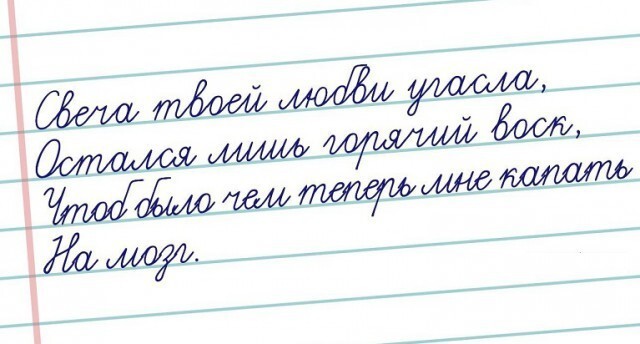 Свеча твоей любви угасла,
Остался лишь горячий воск,
Чтоб было чем теперь мне капать
На мозг.